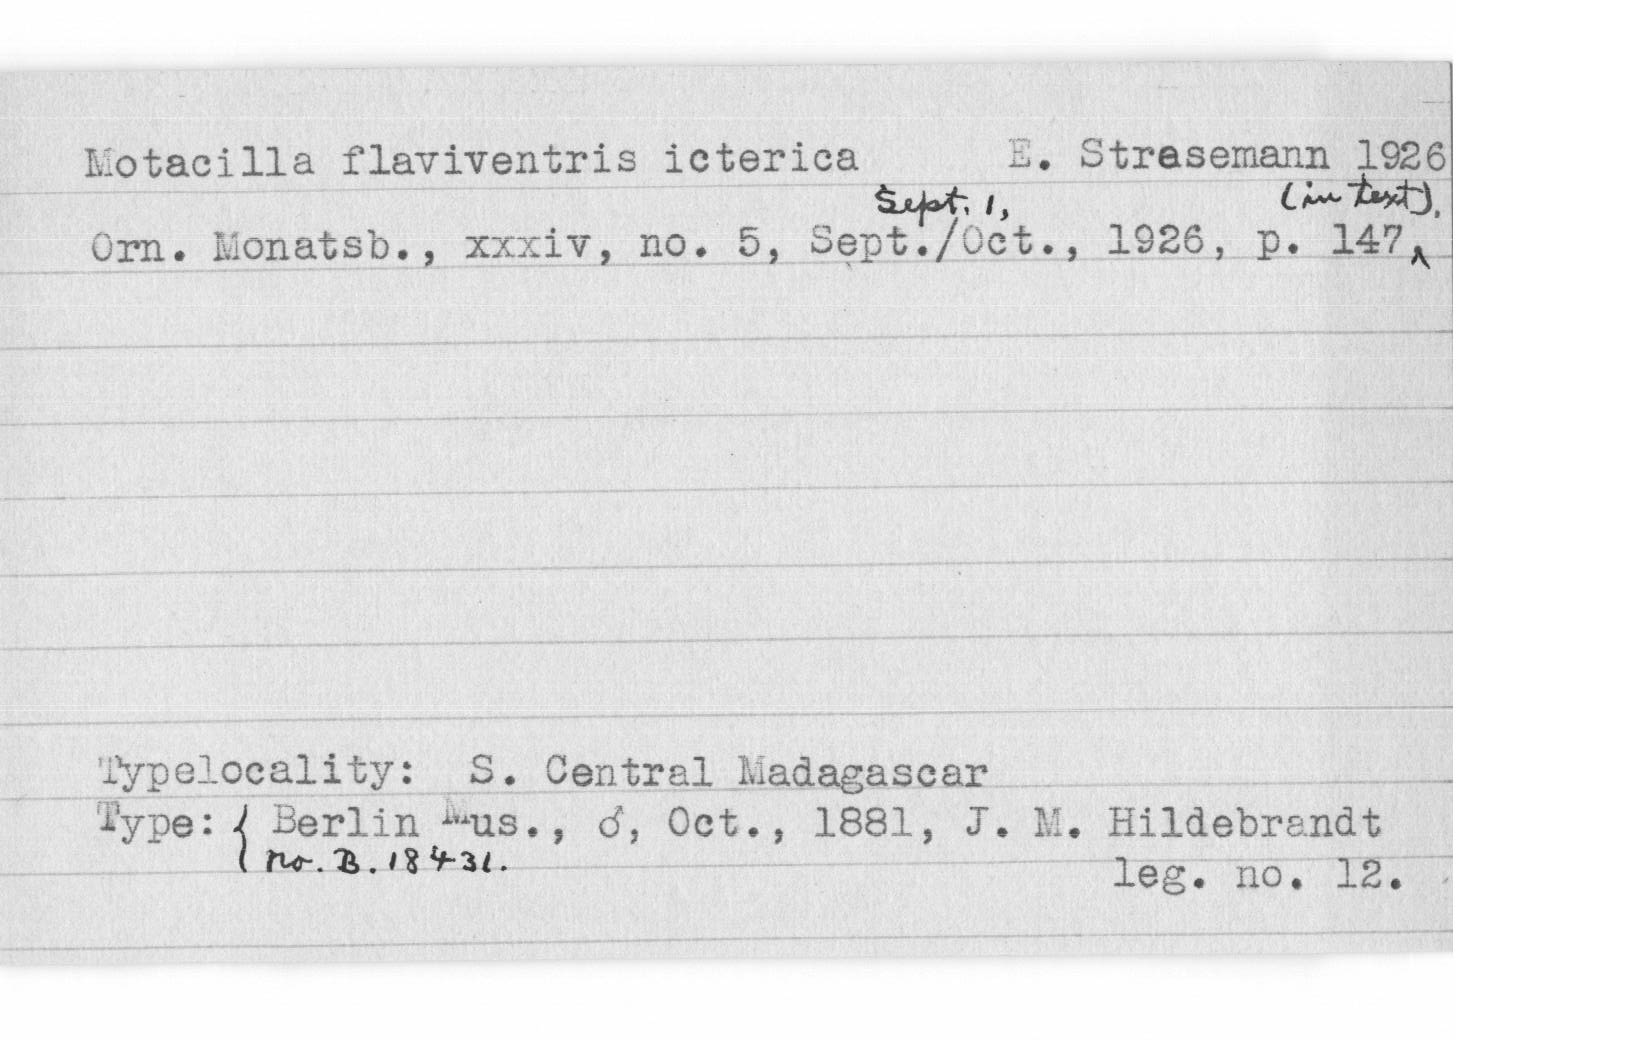 Motacilla flaviventris icterica E. Strasemann 1926
Sept. 1, (in text).
Orn. Monatsb., xxxiv, no. 5, Sept./Oct., 1926, p. 147‸
Typelocality: S. Central Madagascar
Type: { Berlin Mus., ♂, Oct., 1881, J. M. Hildebrandt
no. B. 18431.
leg. no. 12.